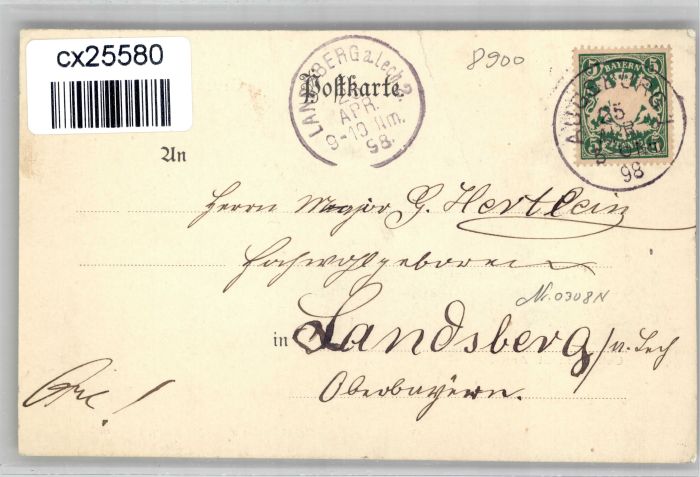 cx25580
8900
5 BAYERN 5
LANDSBERG a. Lech 2.
APR.
9-10 Nm.
98.
AUGSBURG
25
98
Postkarte.
An
Herrn Major G. Hertlein
Hochwohlgeboren
Nr. 0308N
in Landsberg / a. Lech
Oberbayern.